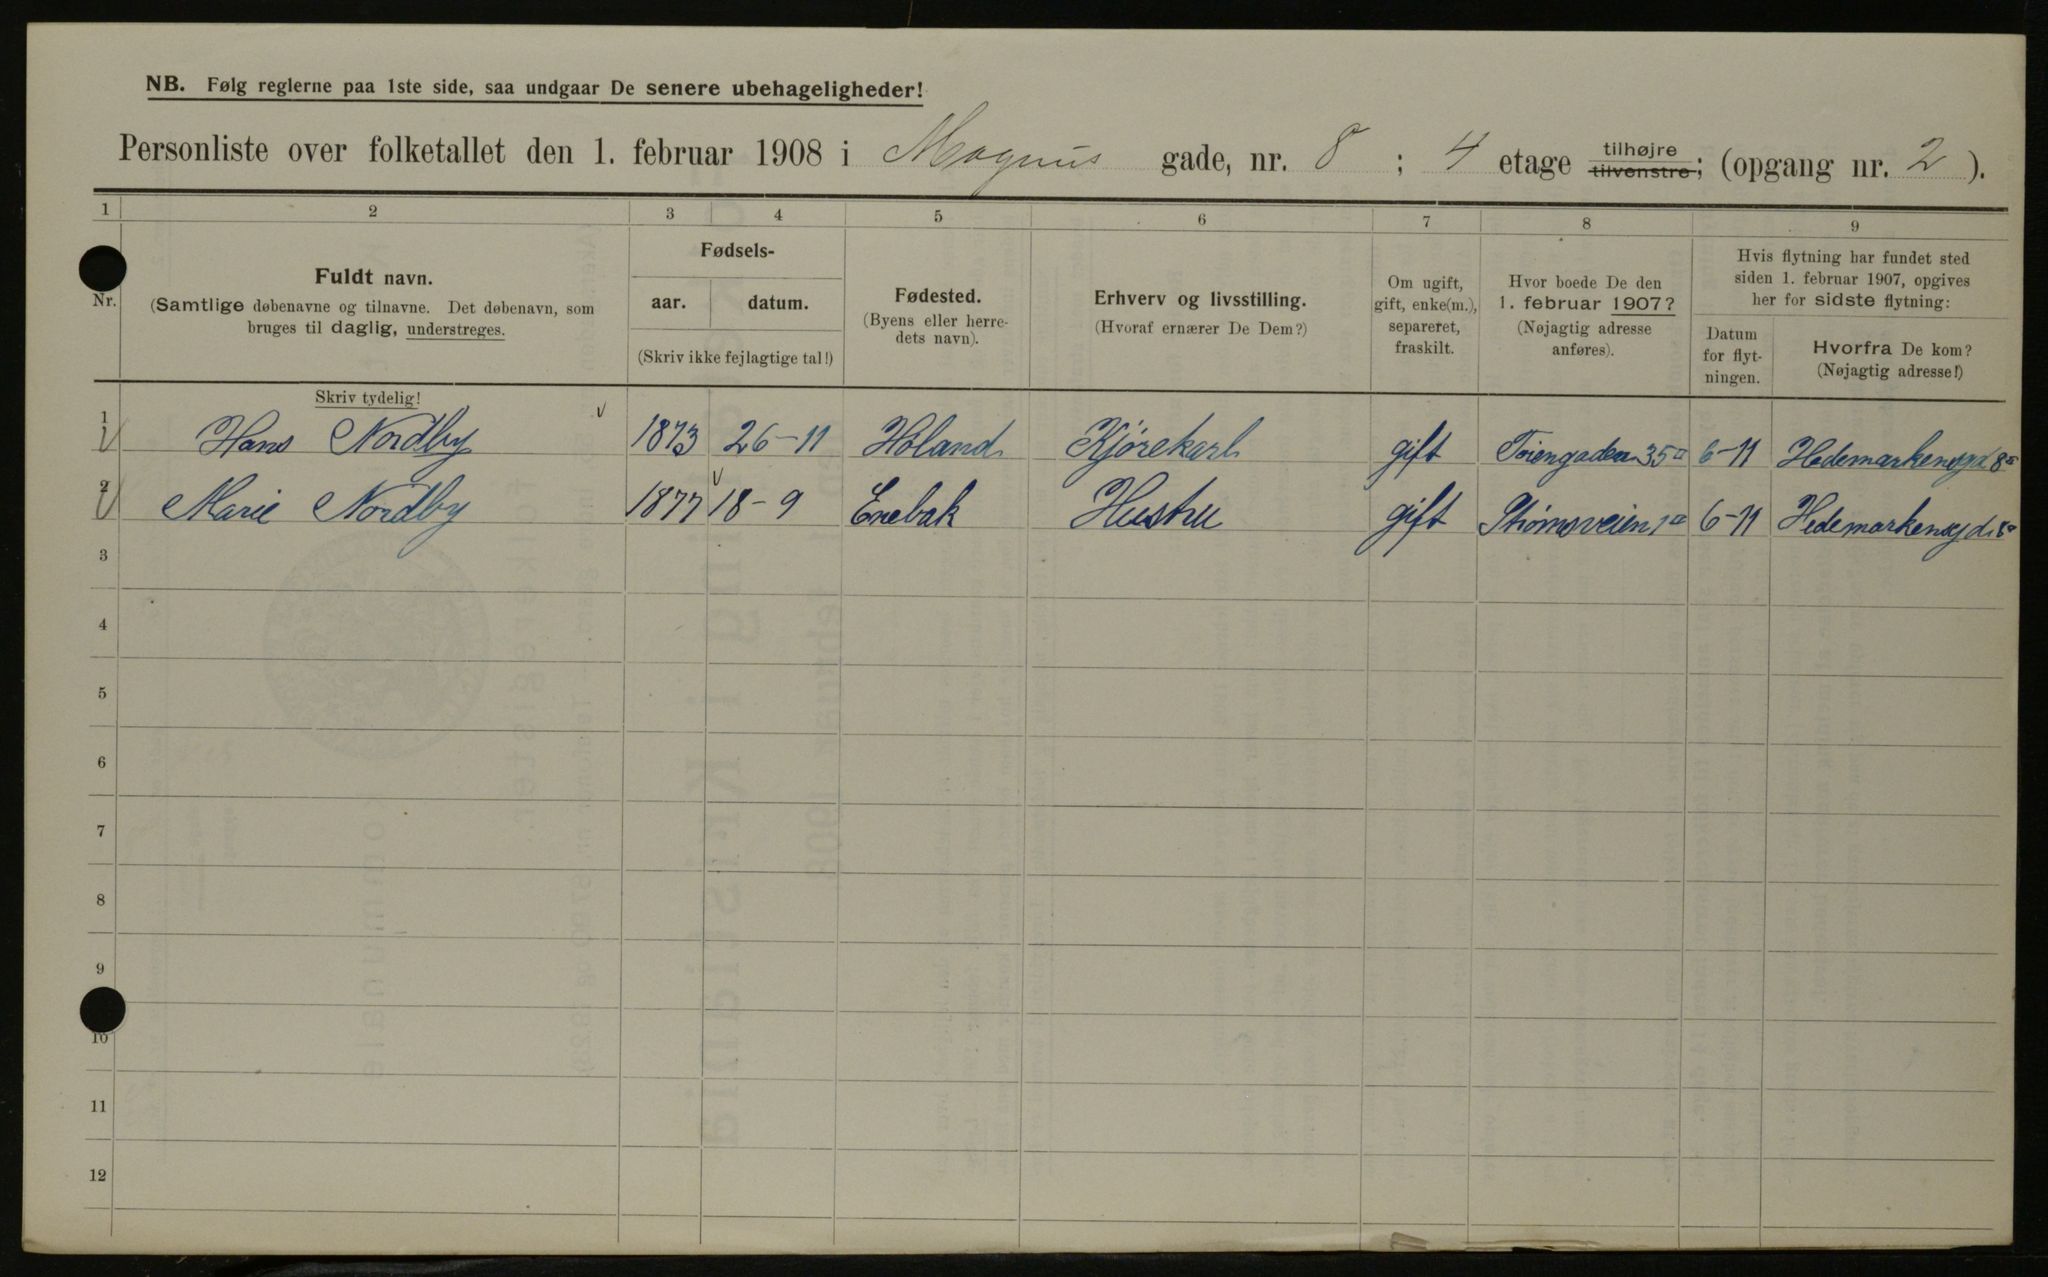 NB. Følg reglerne paa 1ste side, saa undgaar De senere ubehageligheder!
Personliste over folketallet den 1. februar 1908 i Magnus gade, nr. 8 ; 4 etage tilhøjre tilvenstre; (opgang nr. 2 ).
1 2 3 4 5 6 7 8 9
Nr.
Fuldt navn.
(Samtlige døbenavne og tilnavne. Det døbenavn, som
bruges til daglig, understreges.
Skriv tydelig!
Fødsels-
aar. datum.
(Skriv ikke fejlagtige tal!)
Fødested.
(Byens eller herre-
dets navn).
Erhverv og livsstilling.
(Hvoraf ernærer De Dem?)
Om ugift,
gift, enke(m.),
separeret,
fraskilt.
Hvor boede De den
1. februar 1907?
(Nøjagtig adresse
anføres).
Hvis flytning har fundet sted
siden 1. februar 1907, opgives
her for sidste flytning:
Datum
for flyt-
ningen.
Hvorfra De kom?
(Nøjagtig adresse!)
1 Hans Nordby 1873 26-11 Høland Kjørekarl gift Tøiengaden 35 6-11 Hedemarkensgd 8
2 Marie Nordby 1877 18-9 Enebak Hustru gift Strømsveien 1 6-11 Hedemarkensgd. 8
3
4
5
6
7
8
9
10
11
12